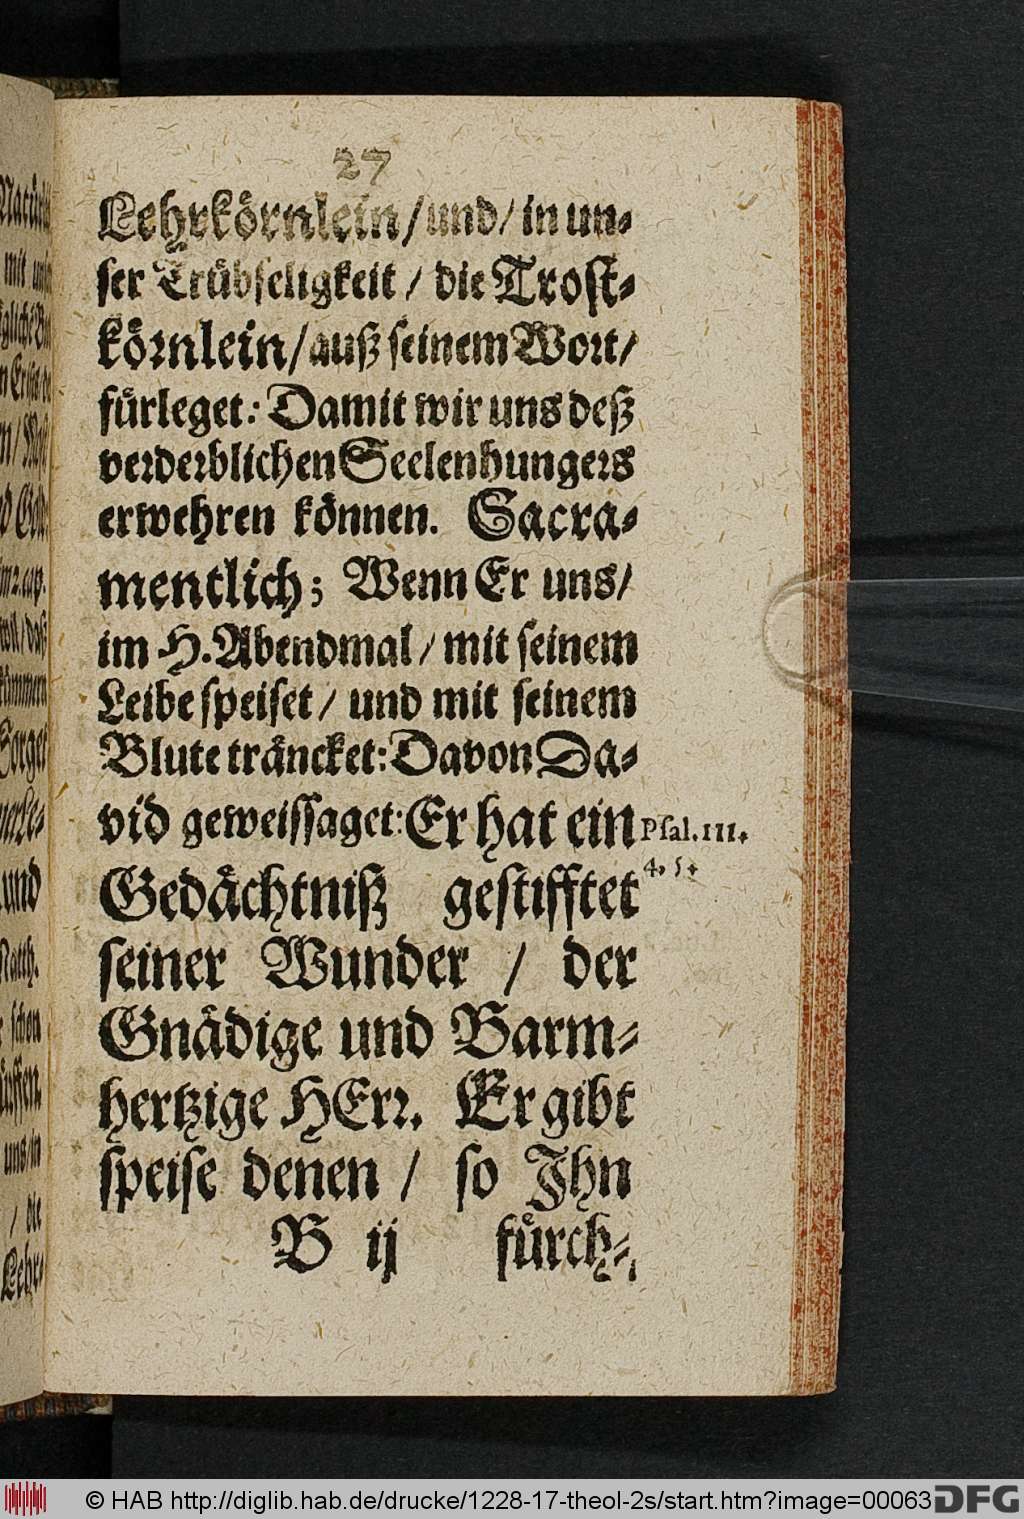 27
Lehrkörnlein / und / in un-
ser Trübseligkeit / die Trost-
körnlein / auß seinem Wort /
fürleget: Damit wir uns deß
verderblichen Seelenhungers
erwehren können. Sacra-
mentlich; Wenn Er uns /
im H. Abendmal / mit seinem
Leibe speiset / und mit seinem
Blute träncket: Davon Da-
vid geweissaget: Er hat ein
Psal. 111.
4. 5.
Gedächtniß gestifftet
seiner Wunder / der
Gnädige und Barm-
hertzige HErr. Er gibt
speise denen / so Ihn
B ij fürch-
© HAB http://diglib.hab.de/drucke/1228-17-theol-2s/start.htm?image=00063
DFG